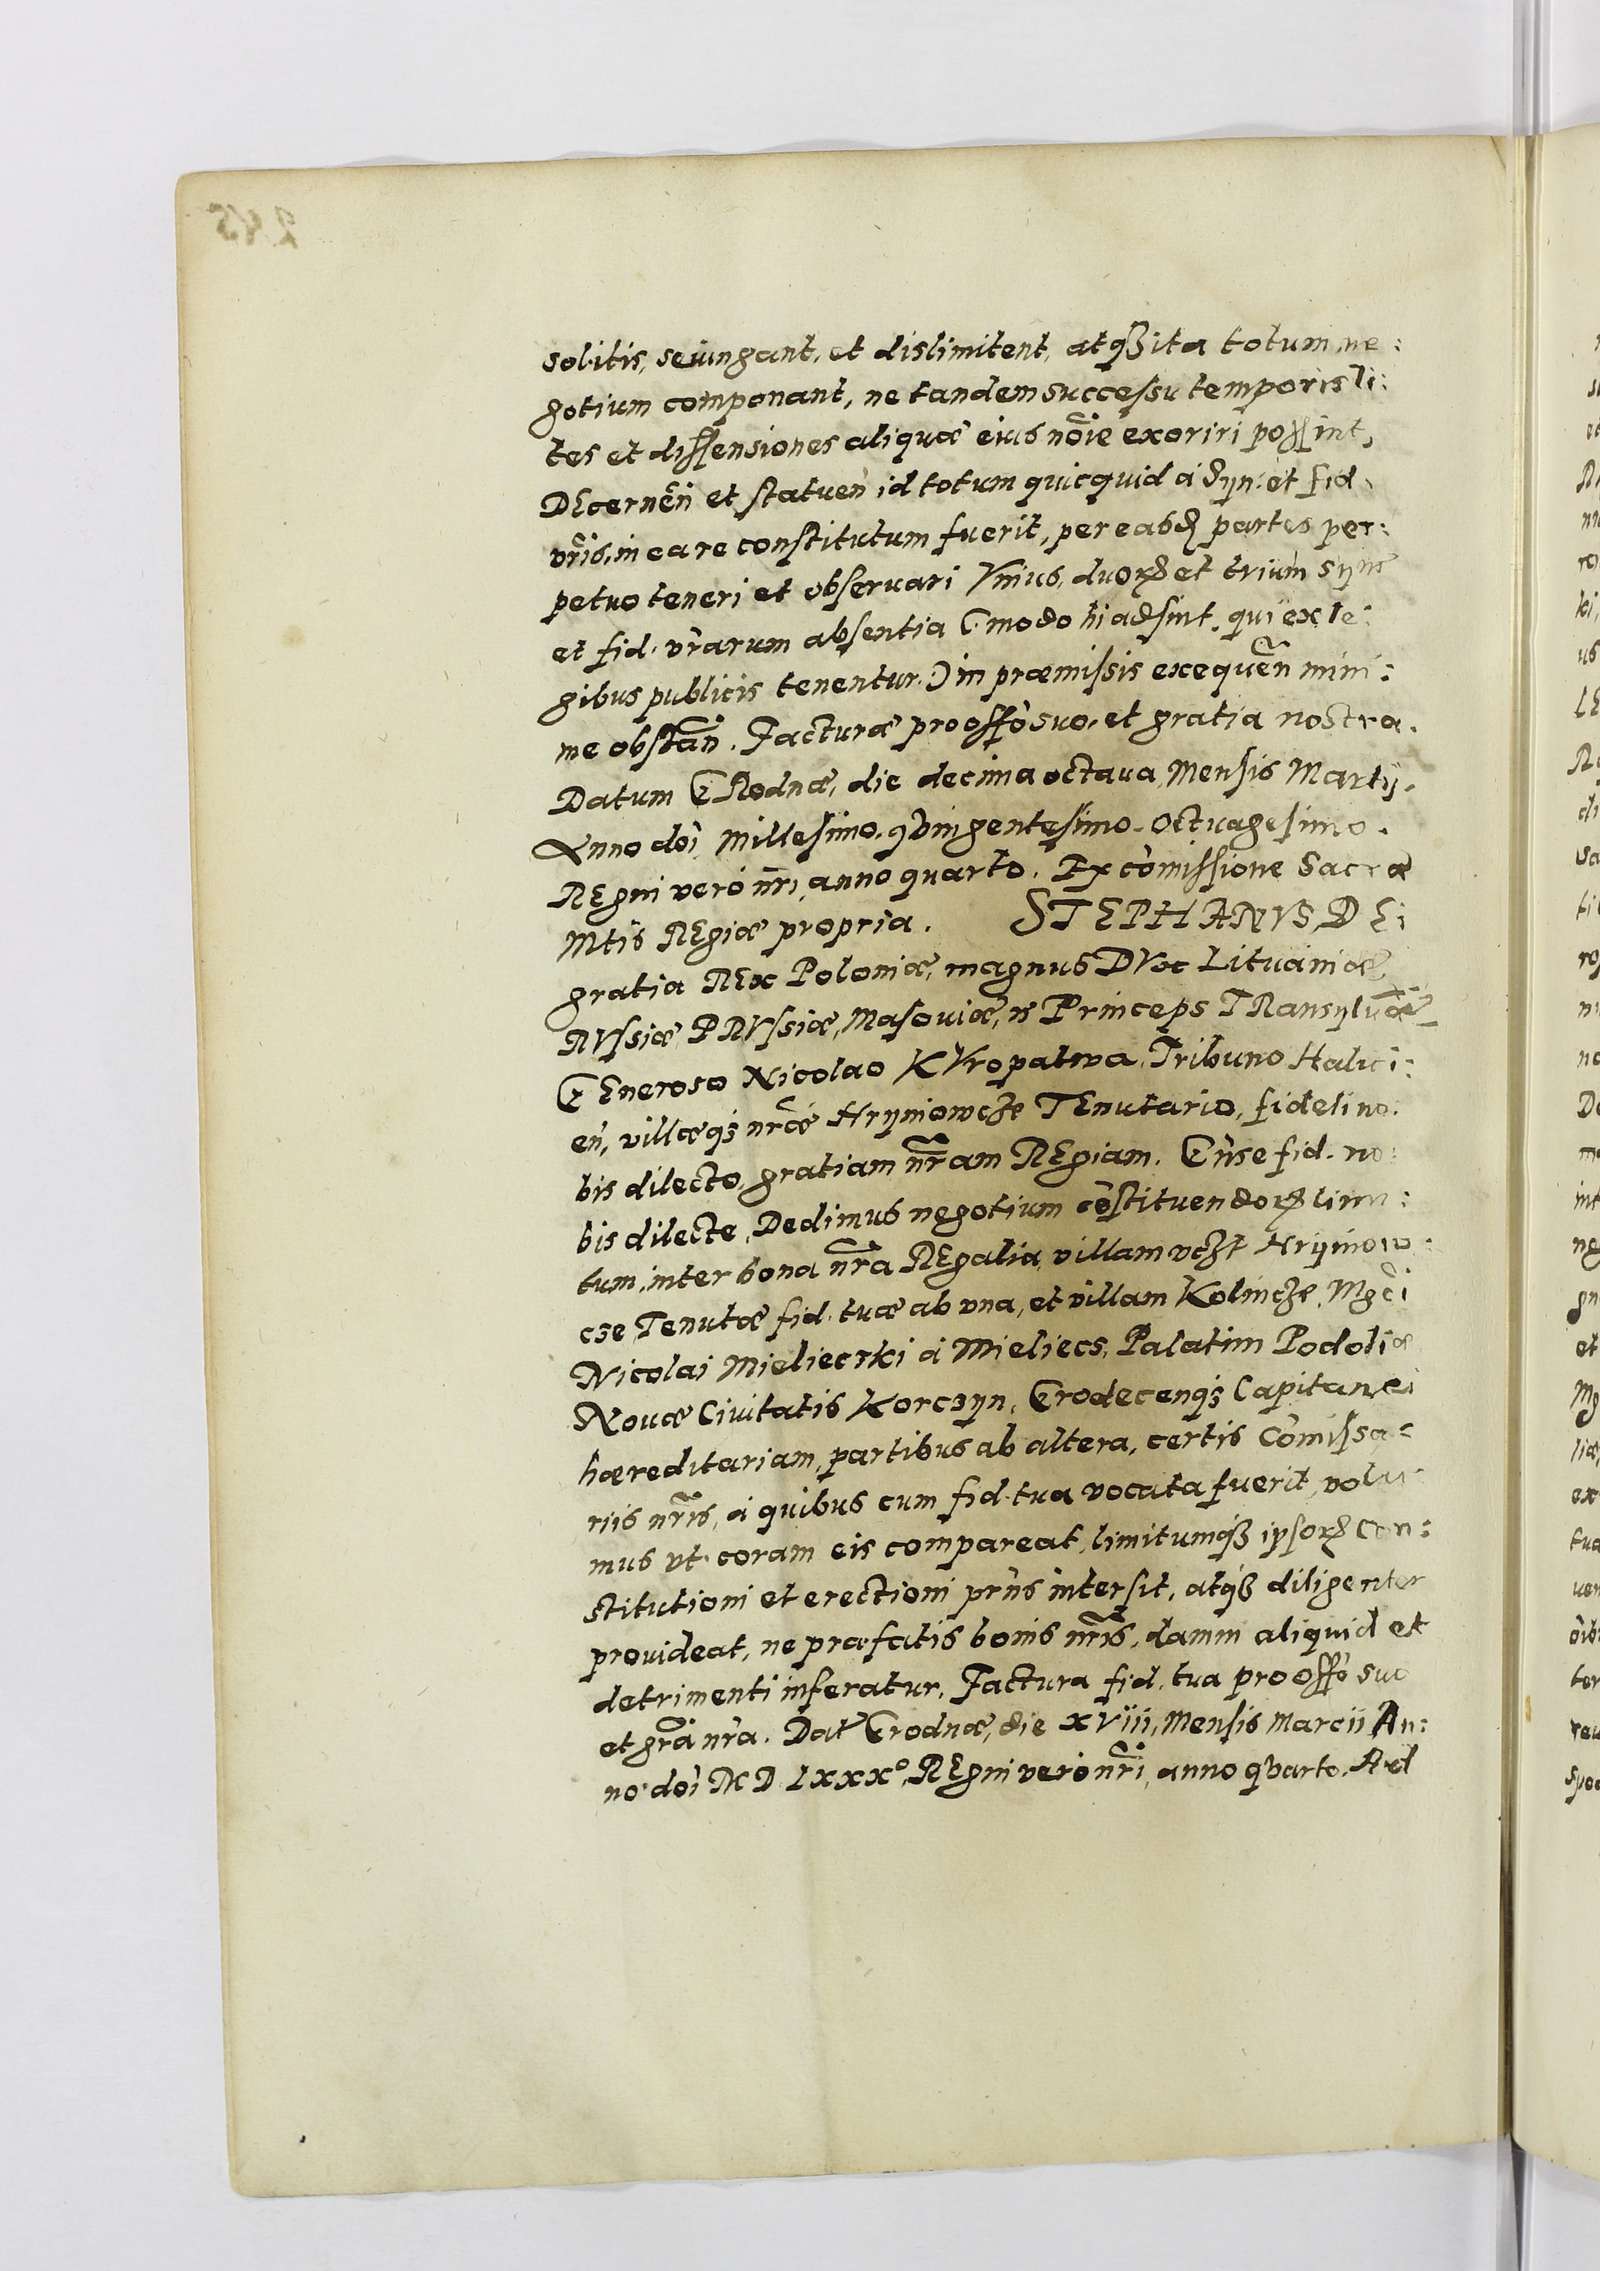 solitis, seiungant, et dislimitent, atqȝ ita totum ne:
gotium componant, ne tandem successu temporis li:
tes et dissensiones aliquæ eius nõie exoriri possint,
DEcernen̄ et statuen̄ id totum quicquid à Syn: et fid.
vr̃is, in ea re constitutum fuerit, per easd partes per:
petuo teneri et obseruari Vnius, duoꝝ et trium Syn̄
et fid. vr̃arum absentia (modo hi adsint, qui ex le:
gibus publicis tenentur.) in præmissis exequen̄ mini:
me obstan̄. Facturæ pro offõ suo, et gratia nostra.
Datum GRodnæ, die decima octaua, Mensis Martij.
Anno doi Millesimo, qVingentesimo. Octuagesimo.
REgni verò nr̃i, anno quarto. Ex cõmissione Sacræ
Mtis REgiæ propria. STEPHANVS, DEi
gratia REx Poloniæ, magnus DVx Lituaniæ,
RVssiæ, PRVssiæ, Masouiæ, ɳ Princeps TRansylũæ
GEneroso Nicolao KVropatwa, Tribuno Halici:
en̄, villæqȝ nr̃æ Hryniowcze TEnutario, fideli no:
bis dilecto, gratiam nr̃am REgiam. Gñse fid. no:
bis dilecte, Dedimus negotium cõstituendoꝝ limi:
tum, inter bona nr̃a REgalia, villam vczt Hryniow:
cze, Tenutæ fid. tuæ ab vna, et villam Kolincze, Mgci
Nicolai Mieliecrki à Mieliecs, Palatini Podoliæ
Nouæ Ciuitatis Korczyn, Grodecenqȝ Capitanei
hæreditariam, partibus ab altera, certis Cõmissa:
riis nr̃is, à quibus cum fid. tua vocata fuerit, volu:
mus vt coram eis compareat, limitumqȝ ipsoꝝ Con:
stitutioni et erectioni prñs intersit, atqȝ diligenter
prouideat, ne præfatis bonis nr̃is, damni aliquid et
detrimenti inferatur. Factura fid. tua pro offõ suo
et grã nr̃a. Dat̃ Grodnæ, die XViii, Mensis Marcii An:
no doi MD LXXX°, REgni verò nr̃i, anno qVarto. Ad